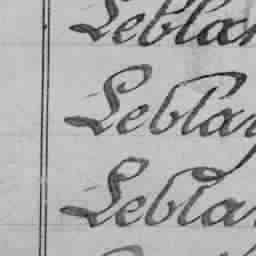 Leblan
Leblan
Leblan